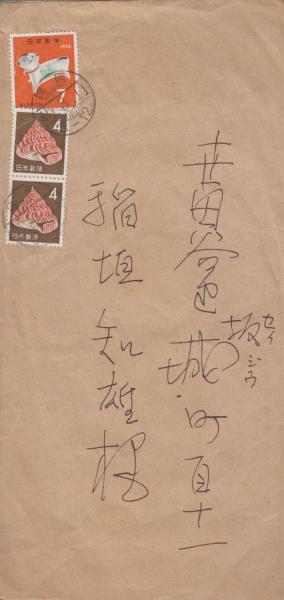 1970
日本郵便
7
NIPPON
4
日本郵便
4
日本郵便
世田谷区 城町百十一
セイ
ジョウ
稲垣知雄様